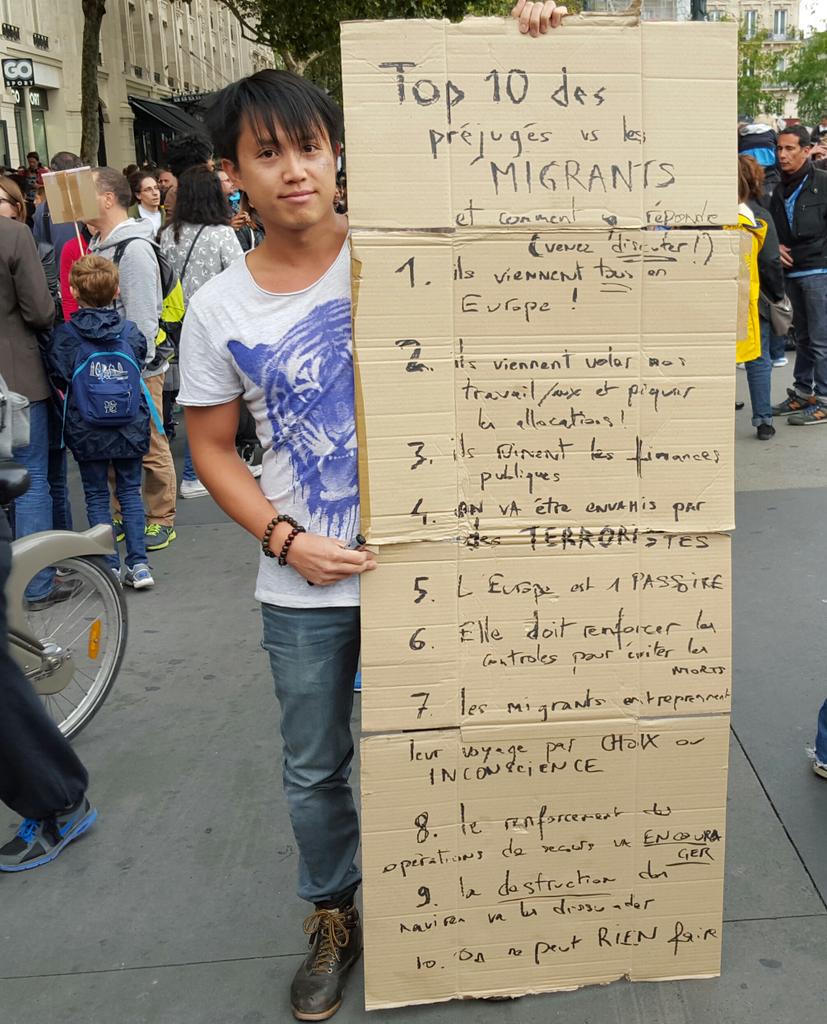 GO
SPORT
Top 10 des
préjugés vs les
MIGRANTS
et comment répondre
(venez discuter!)
1. ils viennent tous en
Europe !
2. ils viennent voler nos
travail/aux et piquer
les allocations!
3. ils RUINENT les finances
publiques
4. ON VA être envahis par
des TERRORISTES
5. L'Europe est 1 PASSOIRE
6. Elle doit renforcer les
controles pour éviter les
MORTS
7. les migrants entreprennent
leur voyage par CHOIX ou
INCONSCIENCE
8. le renforcement des
opérations de secours va ENCOURA
GER
9. la destruction des
navires va les dissuader
10. On ne peut RIEN faire